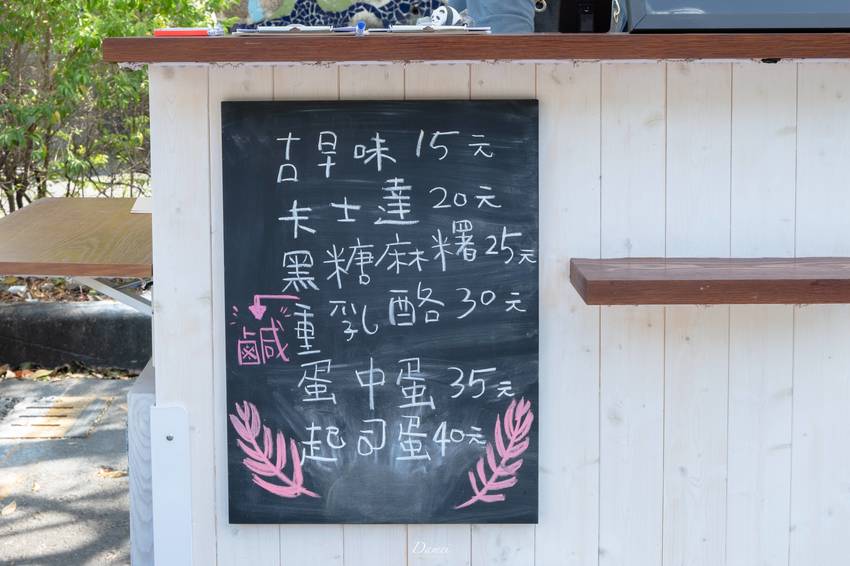 古早味 15元
卡士達 20元
黑糖麻糬 25元
重乳酪 30元
鹹
蛋中蛋 35元
起司蛋 40元
Damei